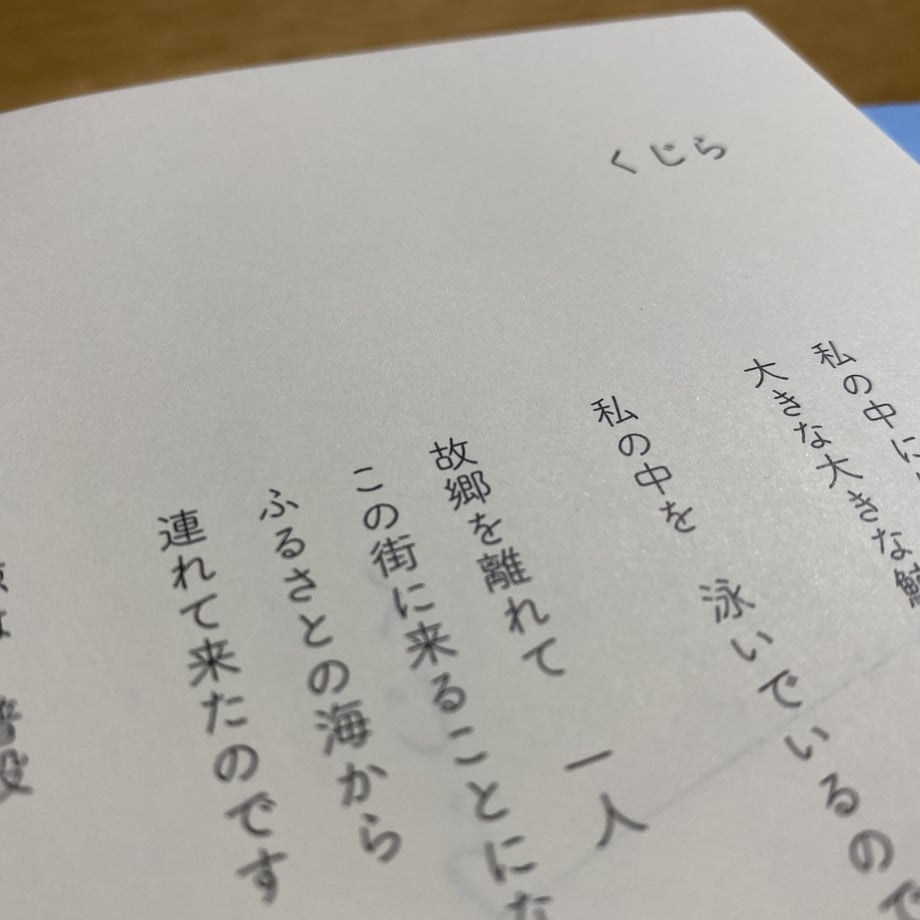 くじら
私の中に
大きな大きな鯨
私の中を 泳いでいるので
故郷を離れて 一人
この街に来ることにな
ふるさとの海から
連れて来たのです
は 普段